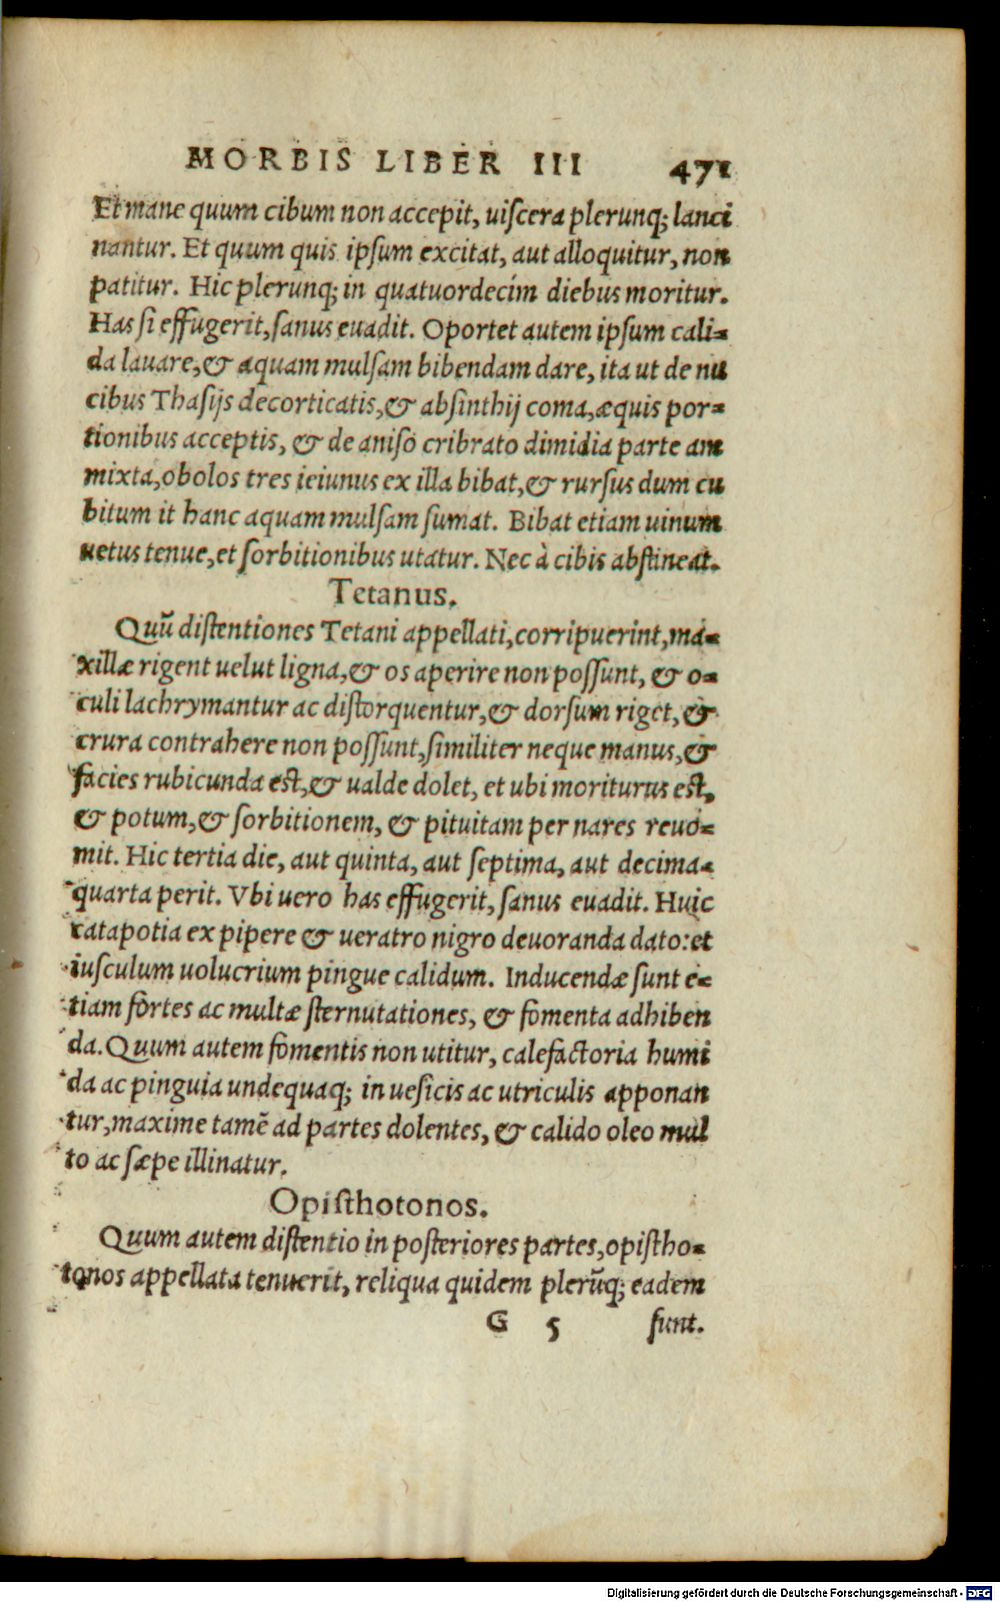 MORBIS LIBER III 471
Et mane quum cibum non accepit, uiſcera plerunq; lanci
nantur. Et quum quis ipſum excitat, aut alloquitur, non
patitur. Hic plerunq; in quatuordecim diebus moritur.
Has ſi effugerit, ſanus euadit. Oportet autem ipſum cali-
da lauare, & aquam mulſam bibendam dare, ita ut de nu
cibus Thaſijs decorticatis, & abſinthij coma, æquis por-
tionibus acceptis, & de aniſo cribrato dimidia parte am
mixta, obolos tres ieiunus ex illa bibat, & rurſus dum cu
bitum it hanc aquam mulſam ſumat. Bibat etiam uinum
uetus tenue, et ſorbitionibus utatur. Nec à cibis abſtineat.
Tetanus.
Quũ diſtentiones Tetani appellati, corripuerint, ma-
xillæ rigent uelut ligna, & os aperire non poſſunt, & o-
culi lachrymantur ac diſtorquentur, & dorſum riget, &
crura contrahere non poſſunt, ſimiliter neque manus, &
facies rubicunda eſt, & ualde dolet, et ubi moriturus eſt,
& potum, & ſorbitionem, & pituitam per nares reuo-
mit. Hic tertia die, aut quinta, aut ſeptima, aut decima-
quarta perit. Vbi uero has effugerit, ſanus euadit. Huic
catapotia ex pipere & ueratro nigro deuoranda dato: et
iuſculum uolucrium pingue calidum. Inducendæ ſunt e-
tiam fortes ac multæ ſternutationes, & fomenta adhiben
da. Quum autem fomentis non utitur, calefactoria humi
da ac pinguia undequaq; in ueſicis ac utriculis apponan
tur, maxime tamẽ ad partes dolentes, & calido oleo mul
to ac ſæpe illinatur.
Opiſthotonos.
Quum autem diſtentio in poſteriores partes, opiſtho-
tonos appellata tenuerit, reliqua quidem plerũq; eadem
G 5 ſunt.
Digitalisierung gefördert durch die Deutsche Forschungsgemeinschaft - DFG